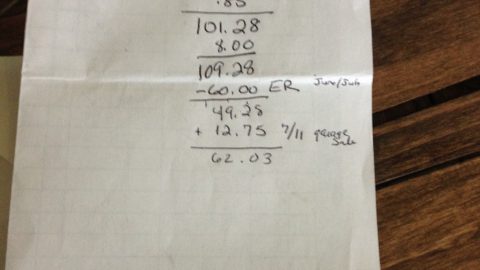 .85
101.28
8.00
109.28
-60.00 ER June/July
49.28
+ 12.75 7/11 garage sale
62.03